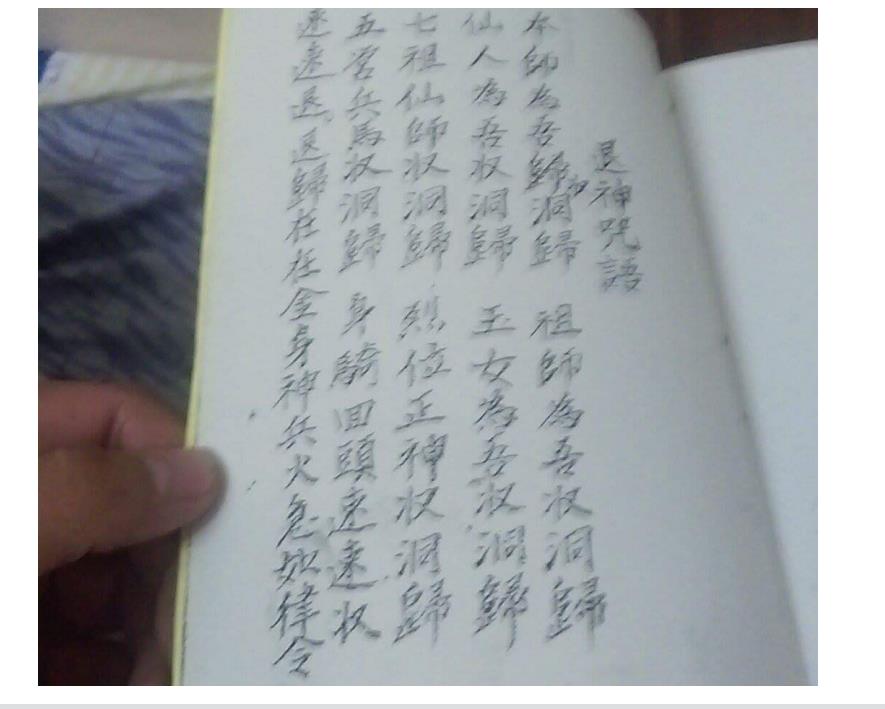 退神咒語
本師為吾歸收洞歸 祖師為吾收洞歸
仙人為吾收洞歸 玉女為吾收洞歸
七祖仙師收洞歸 烈位正神收洞歸
五宮兵馬收洞歸 身騎回頭速速收
速速退退歸在在金身神兵火急如律令